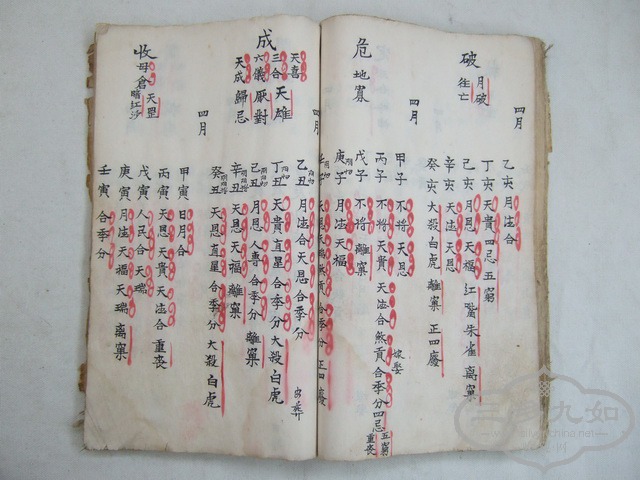 破
月破
往亡
四月
乙亥 月德合
丁亥 天貴 四忌 五窮
己亥 月恩 天福 紅鸞 朱雀 离窠
辛亥 天德 天恩
癸亥 大殺白虎 離窠 正四廢
危
地寡
四月
甲子 不將 天恩
丙子 不將 天貴 天德合 煞貢 合季分 四忌 五窮 重丧
嫁娶
戊子 不將 離窠
庚子 月德 天福
壬子
正四廢
四月
成
天喜
三合 天雄
六儀 厭對
天成 歸忌
乙丑 月德合 天恩 合季分
丁丑 天貴 直星 合季分 大殺白虎
己丑 月恩 人專 合季分 離窠
辛丑 天恩 天福 離窠
癸丑 天恩 直星 合季分 大殺白虎
四月
收
母倉 天罡
暗紅沙
甲寅 日月合
丙寅 天恩 天貴 天德合 重丧
戊寅 人民合 天瑞
庚寅 月德 天福 天瑞 离窠
壬寅 合季分
三濟九如